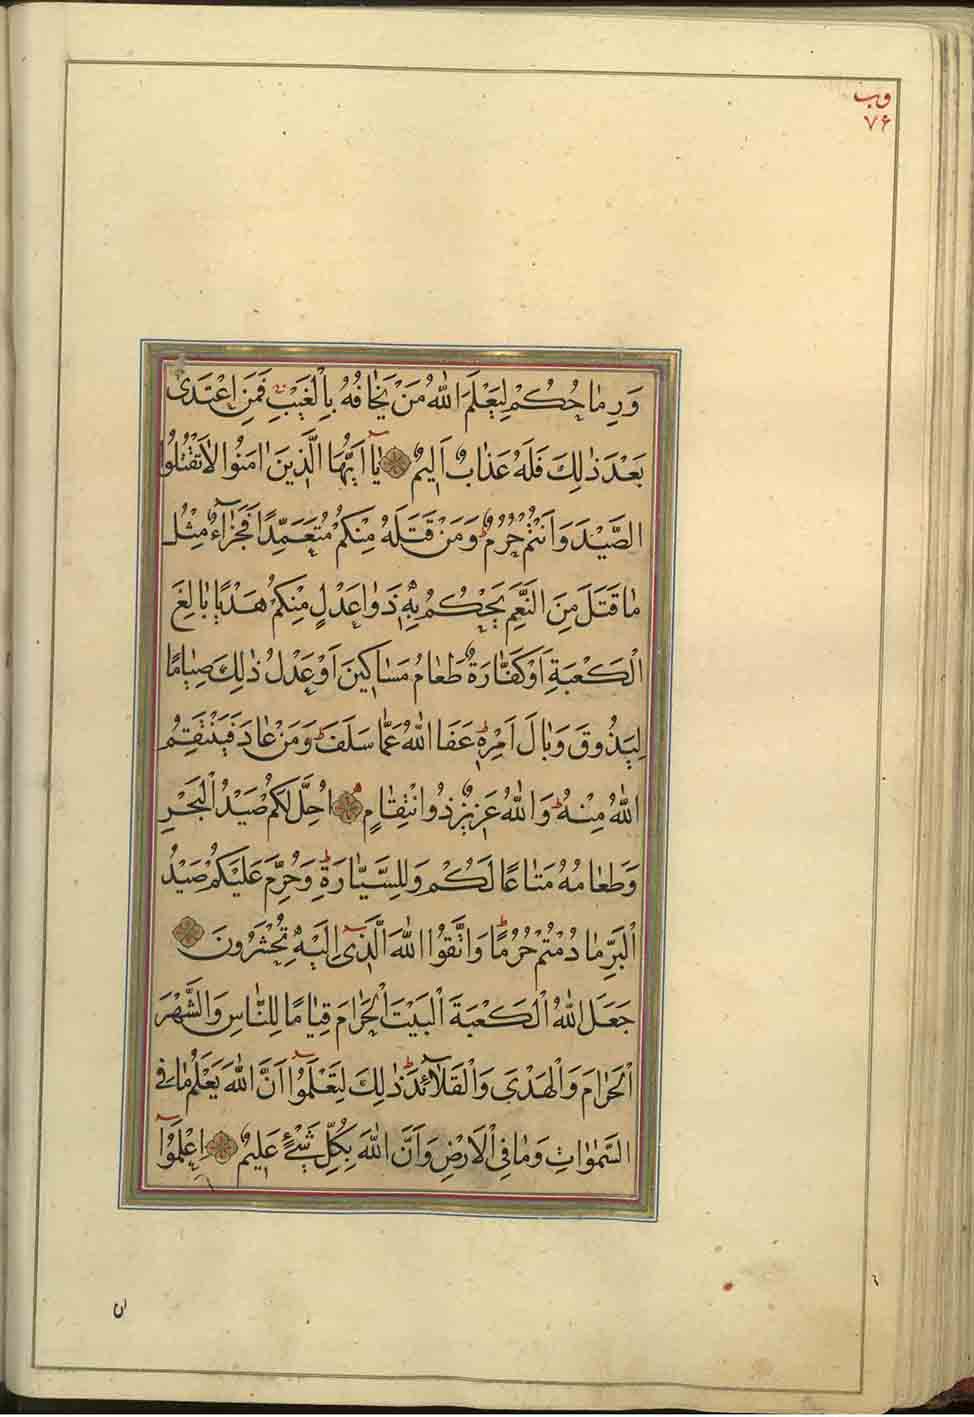 وب
۷۶
وَرِمَاحُكُمْ لِيَعْلَمَ اللّٰهُ مَنْ يَخَافُهُ بِالْغَيْبِ فَمَنِ اعْتَدٰى
بَعْدَ ذٰلِكَ فَلَهُ عَذَابٌ اَلِيمٌ يَآ اَيُّهَا الَّذِينَ اٰمَنُوا لَا تَقْتُلُوا
الصَّيْدَ وَاَنْتُمْ حُرُمٌ وَمَنْ قَتَلَهُ مِنْكُمْ مُتَعَمِّدًا فَجَزَآءٌ مِثْلُ
مَا قَتَلَ مِنَ النَّعَمِ يَحْكُمُ بِهِ ذَوَا عَدْلٍ مِنْكُمْ هَدْيًا بَالِغَ
الْكَعْبَةِ اَوْ كَفَّارَةٌ طَعَامُ مَسَاكِينَ اَوْ عَدْلُ ذٰلِكَ صِيَامًا
لِيَذُوقَ وَبَالَ اَمْرِهِ عَفَا اللّٰهُ عَمَّا سَلَفَ وَمَنْ عَادَ فَيَنْتَقِمُ
اللّٰهُ مِنْهُ وَاللّٰهُ عَزِيزٌ ذُو انْتِقَامٍ اُحِلَّ لَكُمْ صَيْدُ الْبَحْرِ
وَطَعَامُهُ مَتَاعًا لَكُمْ وَلِلسَّيَّارَةِ وَحُرِّمَ عَلَيْكُمْ صَيْدُ
الْبَرِّ مَا دُمْتُمْ حُرُمًا وَاتَّقُوا اللّٰهَ الَّذِىٓ اِلَيْهِ تُحْشَرُونَ
جَعَلَ اللّٰهُ الْكَعْبَةَ الْبَيْتَ الْحَرَامَ قِيَامًا لِلنَّاسِ وَالشَّهْرَ
الْحَرَامَ وَالْهَدْىَ وَالْقَلَآئِدَ ذٰلِكَ لِتَعْلَمُوٓا اَنَّ اللّٰهَ يَعْلَمُ مَا فِى
السَّمٰوَاتِ وَمَا فِى الْاَرْضِ وَاَنَّ اللّٰهَ بِكُلِّ شَىْءٍ عَلِيمٌ اِعْلَمُوٓا